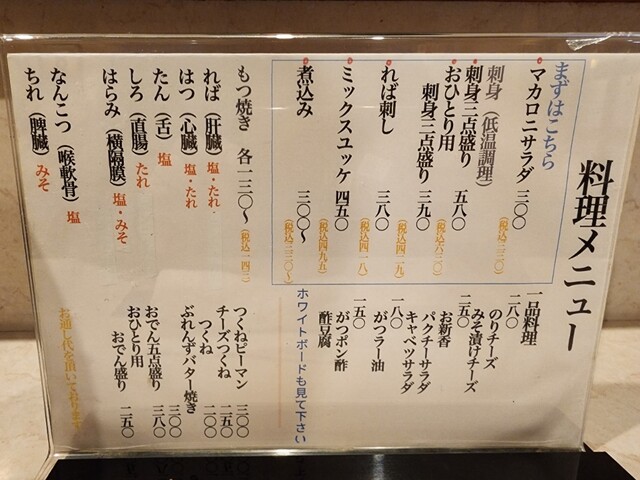 料理メニュー
まずはこちら
マカロニサラダ 三〇〇 (税込三三〇)
刺身(低温調理)
刺身三点盛り 五八〇 (税込六三〇)
おひとり用
刺身三点盛り 三九〇 (税込四二九)
れば刺し 三八〇 (税込四一八)
ミックスユッケ 四五〇 (税込四九五)
煮込み 三〇〇〜 (税込三三〇〜)
もつ焼き 各一三〇〜 (税込一四三)
れば(肝臓) 塩・たれ
はつ(心臓) 塩・たれ
たん(舌) 塩
しろ(直腸) たれ
はらみ(横隔膜) 塩・みそ
なんこつ(喉軟骨) 塩
ちれ(脾臓) みそ
一品料理
二八〇
のりチーズ
みそ漬けチーズ
二五〇
お新香
パクチーサラダ
キャベツサラダ
一八〇
がつラー油
一五〇
がつポン酢
酢豆腐
ホワイトボードも見て下さい
つくねピーマン 三〇〇
チーズつくね 二五〇
つくね 二〇〇
ぶれんずバター焼き 三〇〇
おでん五点盛り 三八〇
おひとり用
おでん盛り 二五〇
お通し代を頂いております